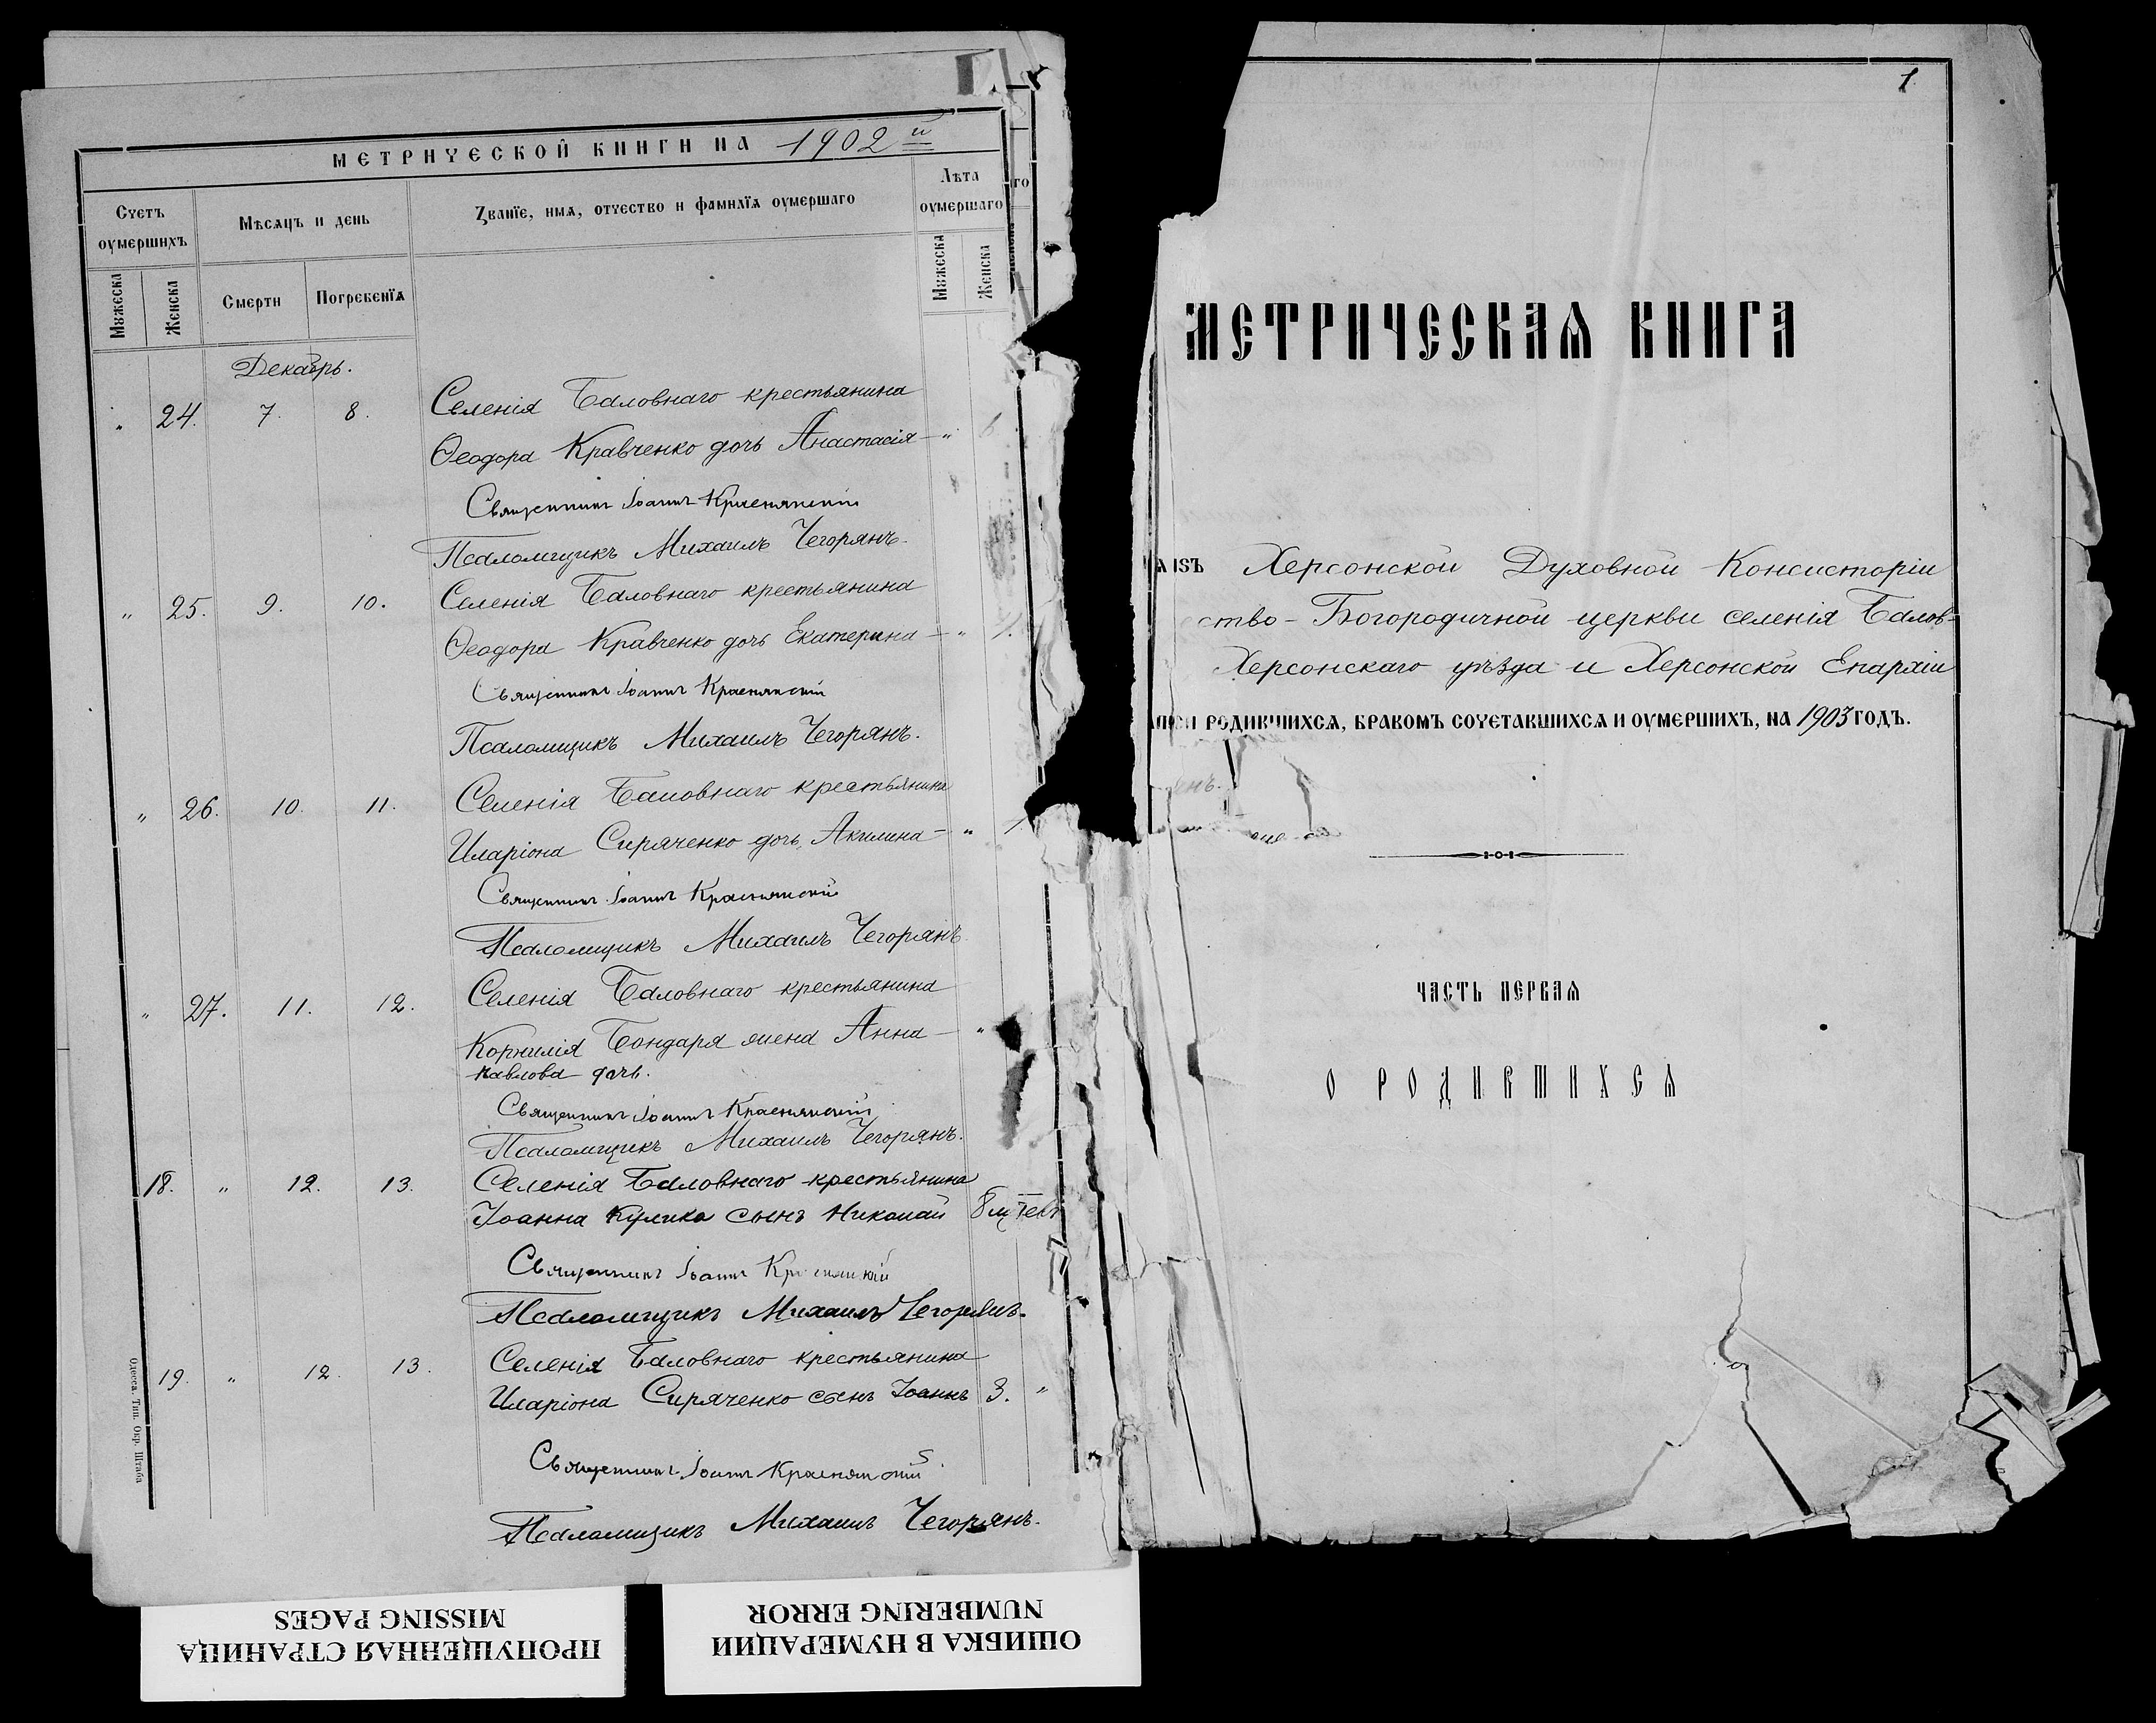 МЕТРИЧЕСКОЙ КНИГИ НА 1902 й
Счетъ оумершихъ
Мѣсяцъ и день
Званїе, имѧ, отчество и фамилїѧ оумершаго
Лѣта оумершаго
го
Мꙋжеска
Женска
Смерти
Погребенїѧ
Мꙋжеска
Женска
Декабрь.
„ 24. 7. 8. Селенія Баловнаго крестьянина
Ѳеодора Кравченко дочь Анастасія — „ 6
Священникъ Іоаннъ Краснянскій
Псаломщикъ Михаилъ Чегорянъ.
„ 25. 9. 10. Селенія Баловнаго крестьянина
Ѳеодора Кравченко дочь Екатерина — „ 1.
Священникъ Іоаннъ Краснянскій
Псаломщикъ Михаилъ Чегорянъ.
„ 26. 10. 11. Селенія Баловнаго крестьянина
Иларіона Сиряченко дочь Акилина — „ 1
Священникъ Іоаннъ Краснянскій
Псаломщикъ Михаилъ Чегорянъ
„ 27. 11. 12. Селенія Баловнаго крестьянина
Корнилія Бондаря жена Анна — „
Павлова дочь.
Священникъ Іоаннъ Краснянскій
Псаломщикъ Михаилъ Чегорянъ.
18. „ 12. 13. Селенія Баловнаго крестьянина
Іоанна Кулика сынъ Николай 8
Священникъ Іоаннъ Краснянскій
Псаломщикъ Михаилъ Чегорянъ.
19. „ 12. 13. Селенія Баловнаго крестьянина
Иларіона Сиряченко сынъ Іоаннъ 3. „
Священникъ Іоаннъ Краснянскій
Псаломщикъ Михаилъ Чегорянъ.
Одесса. Тип. Окр. Штаба
ПРОПУЩЕННАЯ СТРАНИЦА
MISSING PAGES
ОШИБКА В НУМЕРАЦИИ
NUMBERING ERROR
1
МЕТРИЧЕСКАѦ КНИГА
ѦꙆЗЪ Херсонской Духовной Консисторіи
ество-Богородичной церкви селенія Балов-
Херсонскаго уѣзда и Херсонской Епархіи
РОДИВШИХСѦ, БРАКОМЪ СОЧЕТАВШИХСѦ И ОУМЕРШИХЪ, НА 1903 ГОДЪ.
ЧАСТЬ ПЕРВАѦ
О РОДИВШИХСѦ